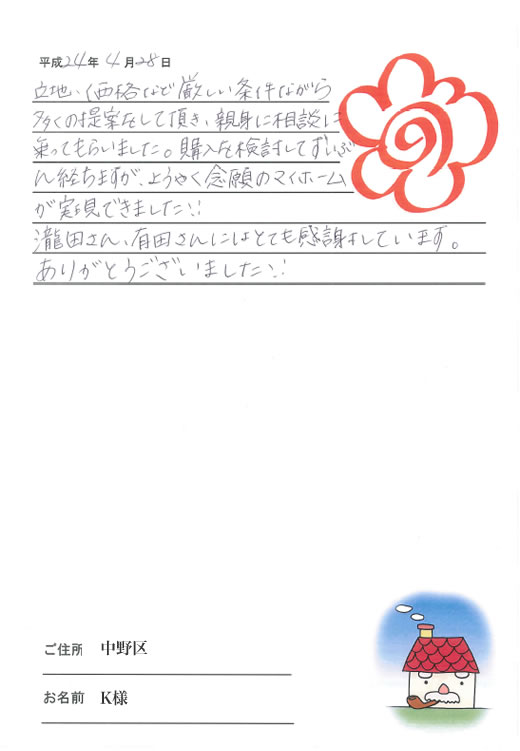 平成24年4月28日
立地、価格など厳しい条件ながら
多くの提案をして頂き、親身に相談に
乗ってもらいました。購入を検討してずいぶ
ん経ちますが、ようやく念願のマイホーム
が実現できました!!
瀧田さん、有田さんにはとても感謝しています。
ありがとうございました!!
ご住所 中野区
お名前 K様